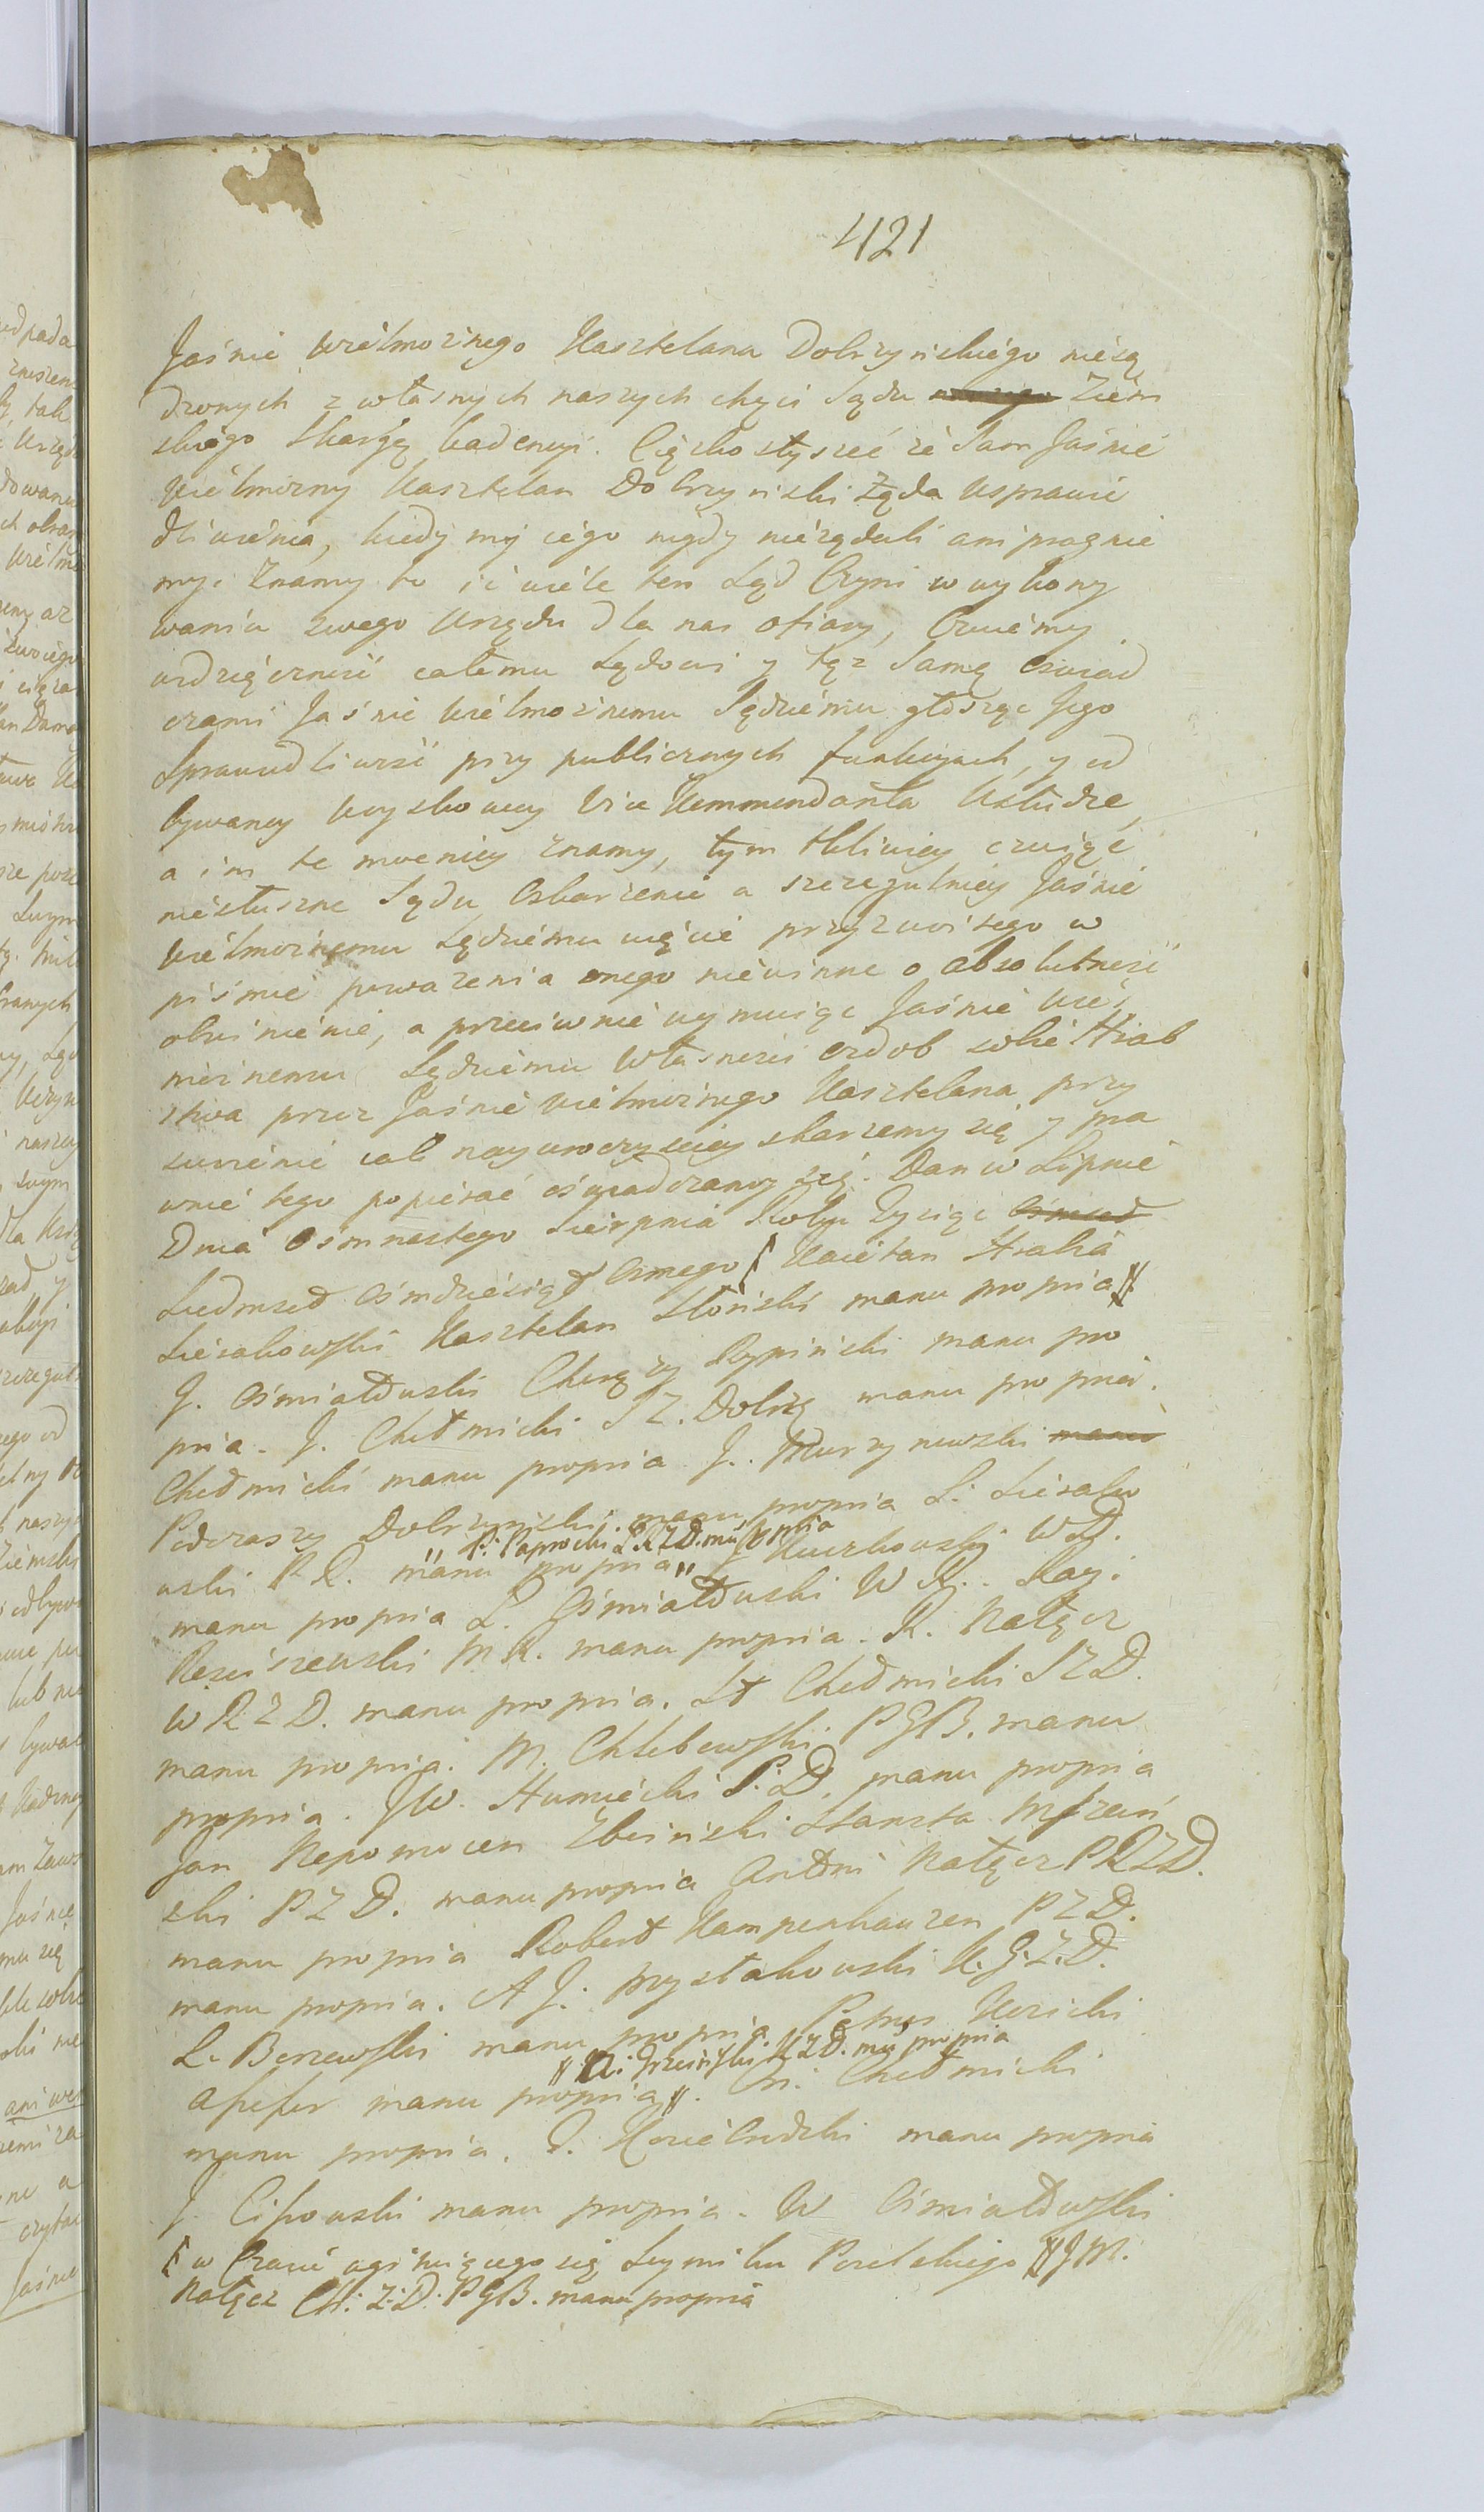 421
Jaśnie Wielmożnego Kasztelana Dobrzyńskiego nieżą
dzonych z własnych naszych chęci Sądu Ziem
skiego Skargę Kadencyi. Ciężko słyszeć że Sam Jaśnie
Wielmożny Kasztelan Dobrzyński Żąda Usprawie
dliwienia, kiedy my iego nigdy nieżądali ani pragnie
my. Znamy to iż wiele ten Sąd Czyni w wykony
waniu swego Urzędu dla nas ofiary, Czuiemy
wdzięczność całemu Sądowi y tęż Samę Oswiad
czami Jaśnie Wielmożnemu Sędziemu głosząc Jego
Sprawiedliwość przy publicznych funkcyach, y od
bywaney Woyskowey Vice Kommendanta Usłudze,
a im te mocniey znamy, tym tkliwiey czuiąc
niesłuszne Sądu Oskarzenie a szczegulniey Jaśnie
Wielmożnemu Sędziemu uięcie przyzwoitego w
piśmie poważenia onego niewinne o absolutność
obwinienie, a przeciwnie uymuiąc Jaśnie Wiel
możnemu Sędziemu Własności ozdob sobie Hrab
stwa przez Jaśnie Wielmożnego Kasztelana przy
suwienie iak nayuroczyściey skarzemy się y pra
wnie tego popierać oświadczamy się. Dan w Lipnie
Dnia Osmnastego Sierpnia Roku Tysiąc Ośmset
Siedmset Ośmdziesiąt Osmego Kaietan Hrabia
Sierakowski Kasztelan Słoński manu propria
J. Ośmiałowski Chorąży Rypiński manu pro
pria. J. Chełmicki S Z. Dobrz manu propria.
Chełmicki manu propria J. Murzynowski manu
Podczaszy Dobrzyński manu propria L. Sierako
wski P R. manu propria J Kuczkowski W D.
P. Paprocki P R Z D. mu propria
manu propria L. Ośmiałowski W R. Ray.
Rościszewski M R. manu propria. R. Nałęcz
W R Z D. manu propria. St Chełmicki S Z D.
manu propria. M. Chlebowski P G B. manu
propria. JW. Humiecki P. D. manu propria
Jan Nepomucen Zboiński Starosta Mszeń
ski P Z D. manu propria Antoni Nałęcz P R Z D.
manu propria Robert Kampenhauzen P Z D.
manu propria. A J. Przystakowski K. G. Z. D.
L. Borzewski manu propria Kosicki
U. Jrzeiński K Z D. mu propria
manu propria. Chełmicki
manu propria. manu propria
J. Cissowski manu propria. W Ośmiałowski
w Czasie agituiącego się Seymiku Poselskiego J M.
Nałęcz CH: Z: D. P G B. manu propria